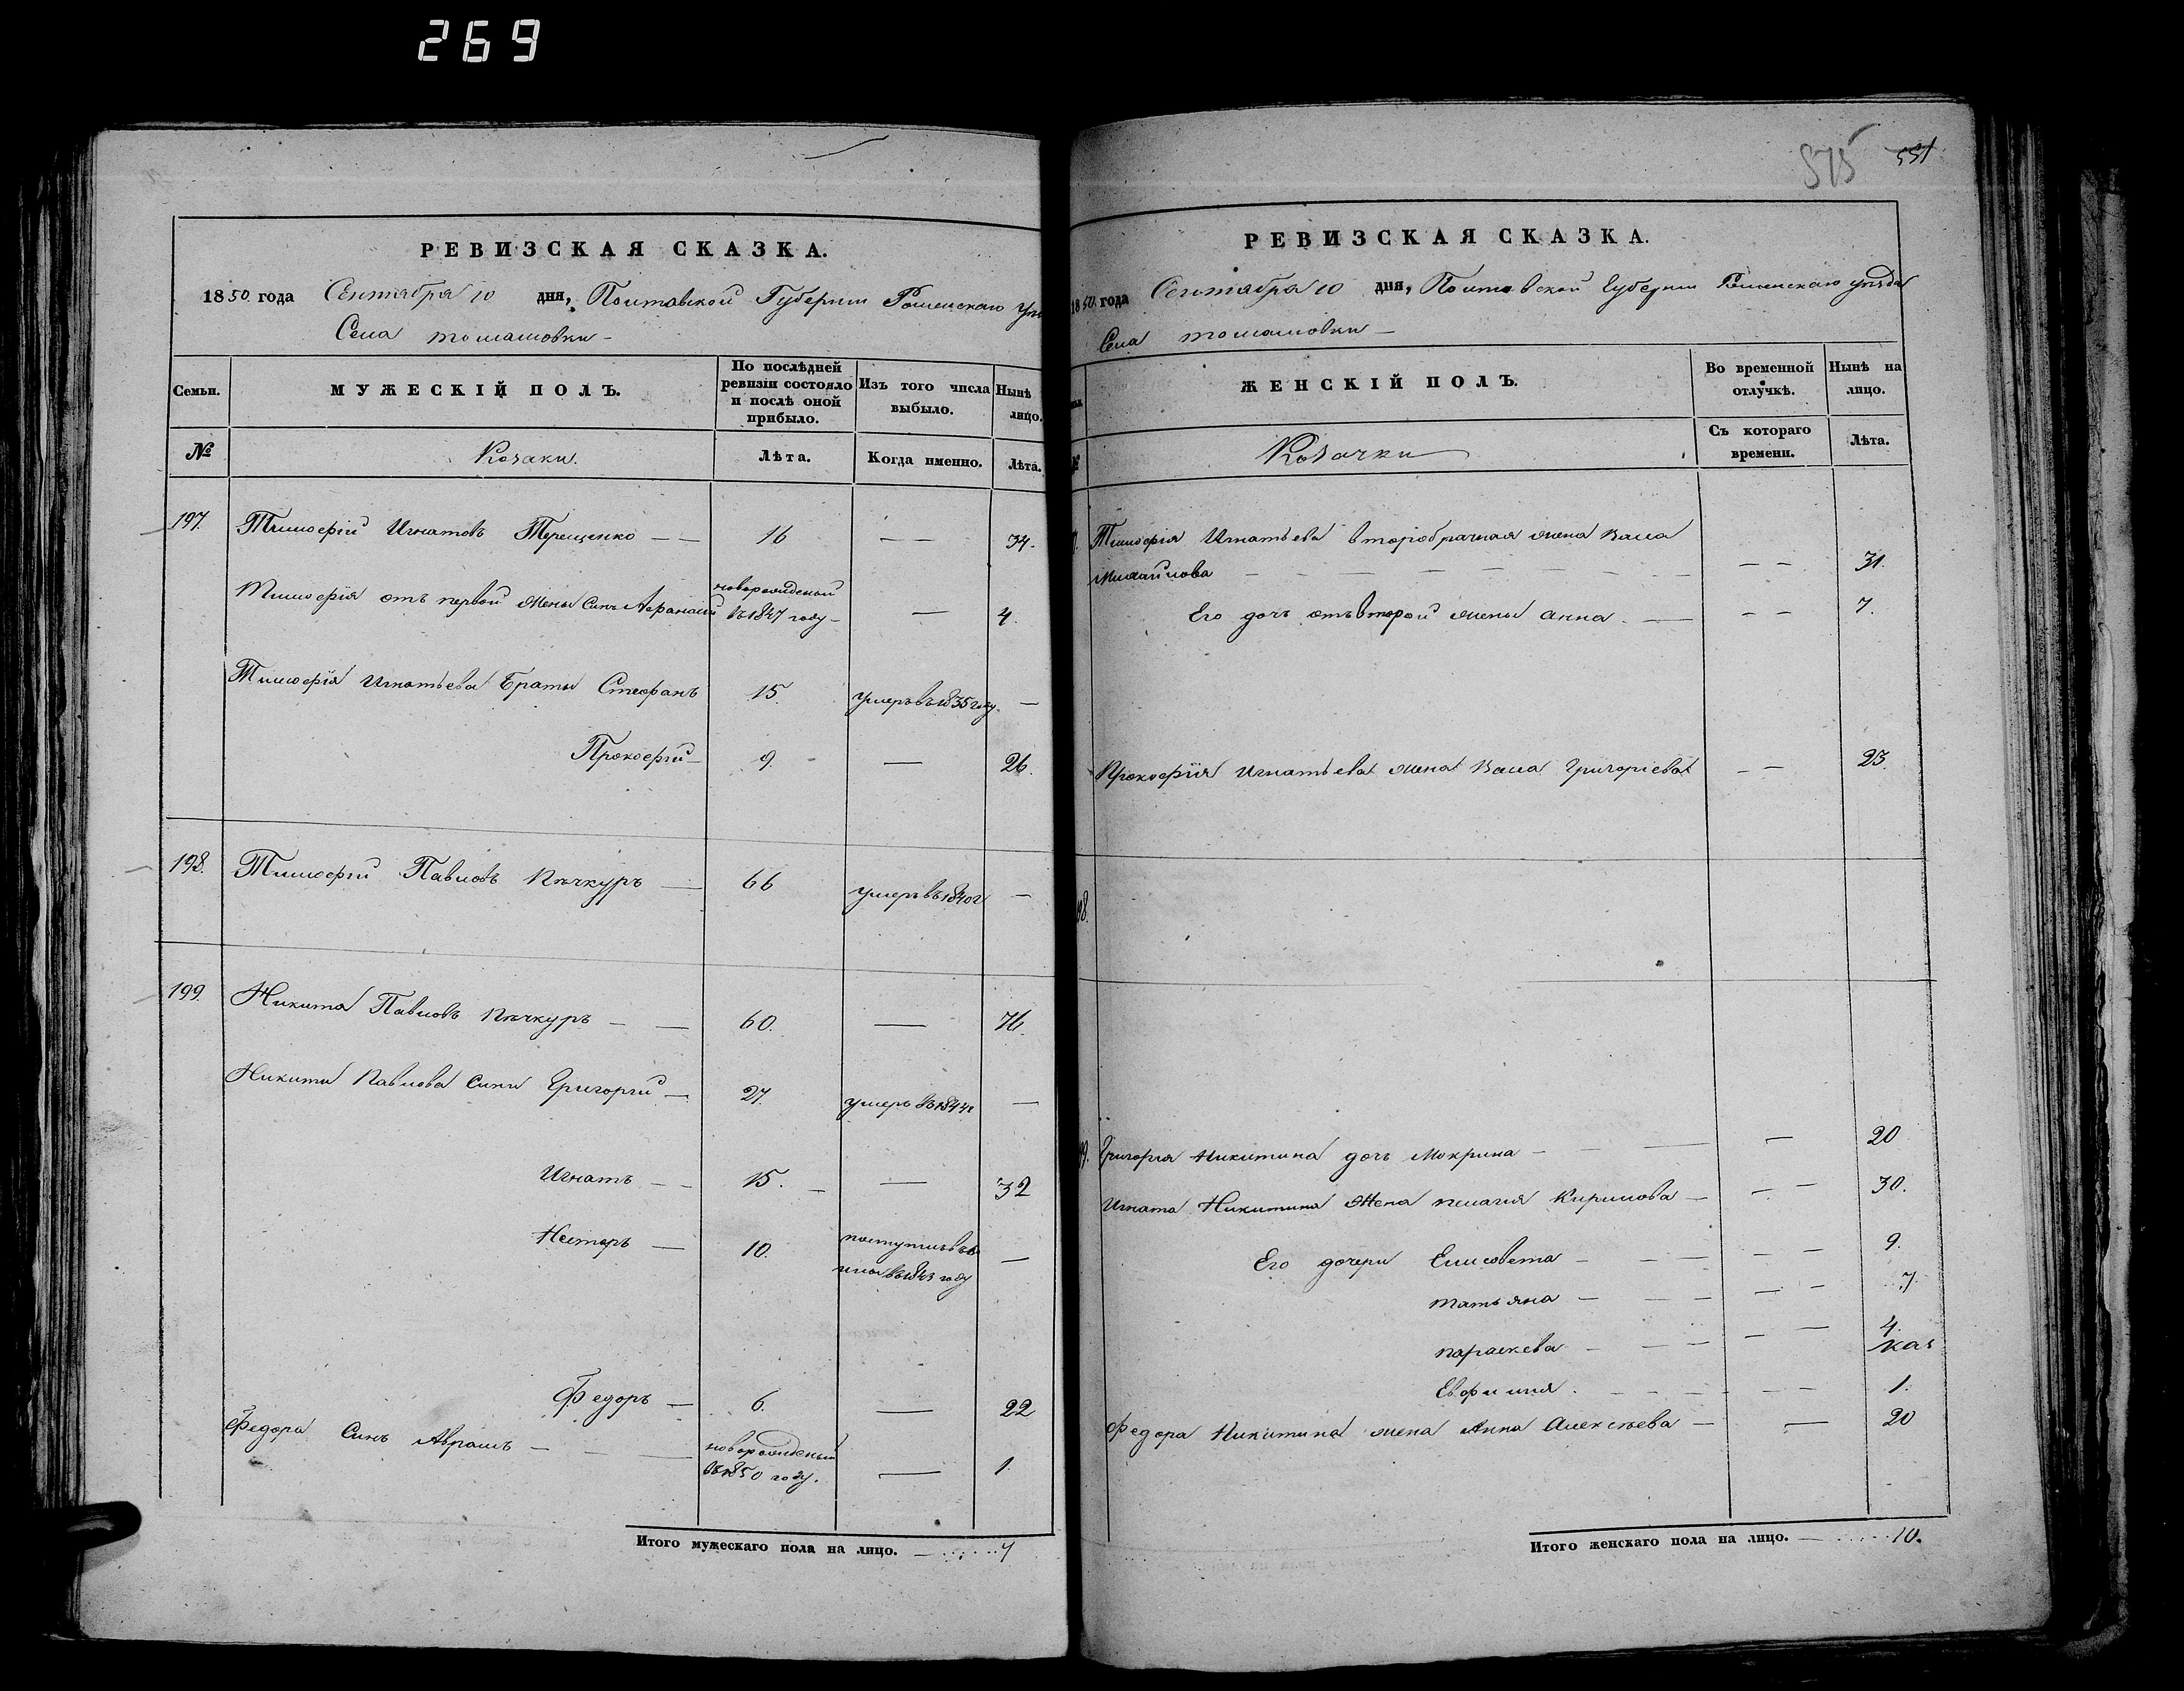 269
РЕВИЗСКАЯ СКАЗКА.
1850 года Сентября 10 дня, Полтавской Губернии Роменскаго
Села томашовки
Семьи. МУЖЕСКІЙ ПОЛЪ. По послѣдней ревизіи состояло и послѣ оной прибыло. Изъ того числа выбыло. Нынѣ лицо.
№ Козаки. Лѣта. Когда именно. Лѣта.
197. Тимофій Игнатовъ Терещенко 16 — — 34.
Тимофія отъ первой жены синъ Афанасій новорожденый въ 1847 году — 4.
Тимофія Игнатьева Браты Стефанъ 15. умеръ въ 1835 году. —
Прокофій 9. — 26.
198. Тимофій Павловъ Пѣчкуръ 66 умеръ въ 1840 г —
199. Никита Павловъ Пѣчкуръ 60. — 76.
Никиты Павлова сини Григорій 27. умеръ въ 1844 г —
Игнатъ 15. — 32
Нестеръ 10. въ 1843 году —
Федоръ 6. — 22
Федора Синъ Аврамъ новорожденый въ 1850 году. — 1.
Итого мужескаго пола на лицо. 7
575 551
РЕВИЗСКАЯ СКАЗКА.
1850 года Сентября 10 дня, Полтавской Губернии Роменскаго уѣзда
Села томашовки
ЖЕНСКІЙ ПОЛЪ. Во временной отлучкѣ. Нынѣ на лицо.
№ Козачки Съ котораго времени. Лѣта.
Тимофія Игнатьева второбрачная жена Васа
Михайлова — — 31.
Его дочъ отъ второй жены Анна — — 7.
Прокофіія Игнатьева жена Васа Григоріева — — 23.
98.
99. Григорія Никитина дочъ Мокрина — 20
Игната Никитина Жена пелагія Кирилова — — 30.
Его дочери Елисовета — — 9.
татьяна — — 7.
параскева — — 4.
Евфимія — — 1.
Федора Никитина жена Анна Алексѣева — 20
Итого женскаго пола на лицо. 10.